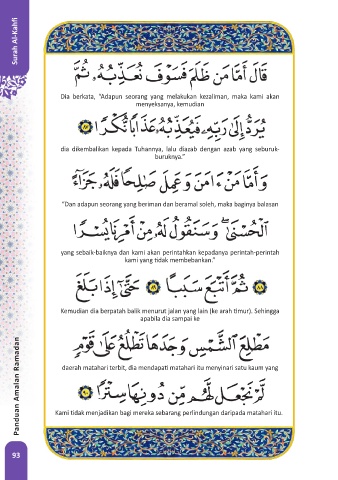 Surah Al-Kahfi
قَالَ أَمَّا مَن ظَلَمَ فَسَوْفَ نُعَذِّبُهُۥ ثُمَّ
Dia berkata, “Adapun seorang yang melakukan kezaliman, maka kami akan
menyeksanya, kemudian
يُرَدُّ إِلَىٰ رَبِّهِۦ فَيُعَذِّبُهُۥ عَذَابًا نُّكْرًا ٨٧
dia dikembalikan kepada Tuhannya, lalu diazab dengan azab yang seburuk-
buruknya.”
وَأَمَّا مَنْ ءَامَنَ وَعَمِلَ صَـٰلِحًا فَلَهُۥ جَزَآءً
“Dan adapun seorang yang beriman dan beramal soleh, maka baginya balasan
ٱلْحُسْنَىٰ ۖ وَسَنَقُولُ لَهُۥ مِنْ أَمْرِنَا يُسْرًا
yang sebaik-baiknya dan kami akan perintahkan kepadanya perintah-perintah
kami yang tidak membebankan.”
٨٨ ثُمَّ أَتْبَعَ سَبَبًا ٨٩ حَتَّىٰٓ إِذَا بَلَغَ
Kemudian dia berpatah balik menurut jalan yang lain (ke arah timur). Sehingga
apabila dia sampai ke
مَطْلِعَ ٱلشَّمْسِ وَجَدَهَا تَطْلُعُ عَلَىٰ قَوْمٍ
daerah matahari terbit, dia mendapati matahari itu menyinari satu kaum yang
لَّمْ نَجْعَل لَّهُم مِّن دُونِهَا سِتْرًا ٩٠
Kami tidak menjadikan bagi mereka sebarang perlindungan daripada matahari itu.
Panduan Amalan Ramadan
93